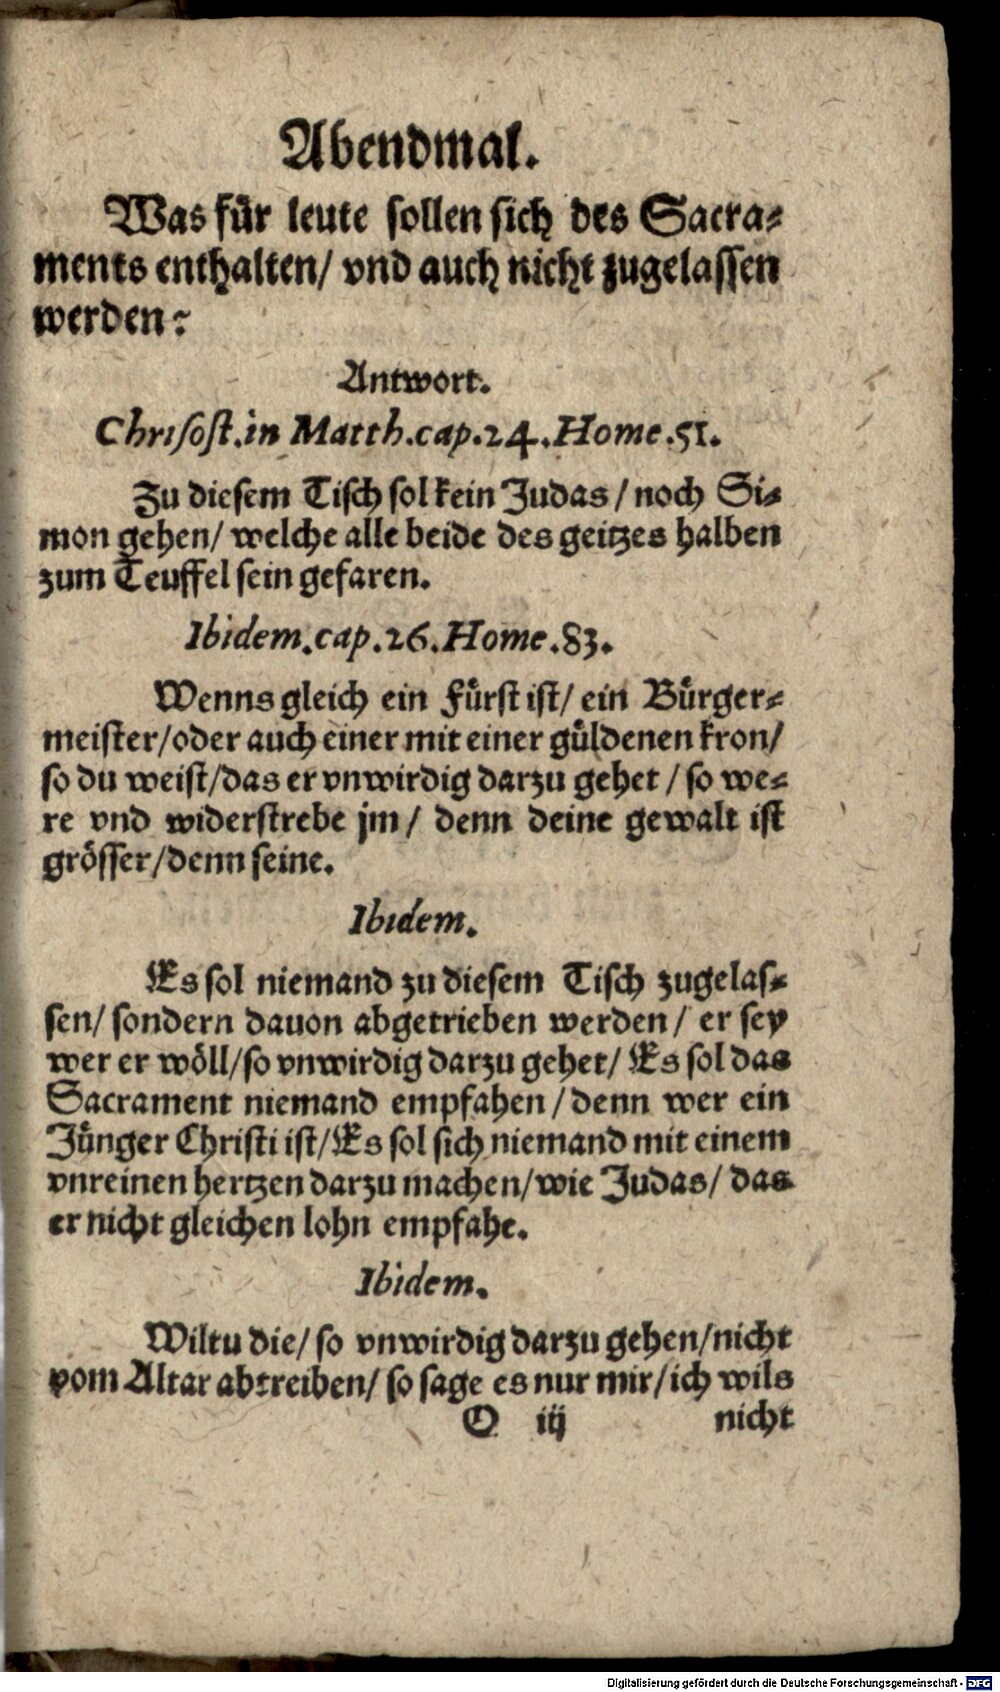 Abendmal.
Was für leute sollen sich des Sacra-
ments enthalten/ vnd auch nicht zugelassen
werden?
Antwort.
Chrisost.in Matth.cap.24.Home.51.
Zu diesem Tisch sol kein Judas / noch Si-
mon gehen/ welche alle beide des geitzes halben
zum Teuffel sein gefaren.
Ibidem.cap.26.Home.83.
Wenns gleich ein Fürst ist/ ein Bürger-
meister/oder auch einer mit einer güldenen kron/
so du weist/das er vnwirdig darzu gehet / so we-
re vnd widerstrebe jm / denn deine gewalt ist
grösser/denn seine.
Ibidem.
Es sol niemand zu diesem Tisch zugelas-
sen/ sondern dauon abgetrieben werden / er sey
wer er wöll/so vnwirdig darzu gehet/ Es sol das
Sacrament niemand empfahen / denn wer ein
Jünger Christi ist/Es sol sich niemand mit einem
vnreinen hertzen darzu machen/wie Judas/ das
er nicht gleichen lohn empfahe.
Ibidem.
Wiltu die/ so vnwirdig darzu gehen/nicht
vom Altar abtreiben/ so sage es nur mir/ich wils
O iij nicht
Digitalisierung gefördert durch die Deutsche Forschungsgemeinschaft - DFG